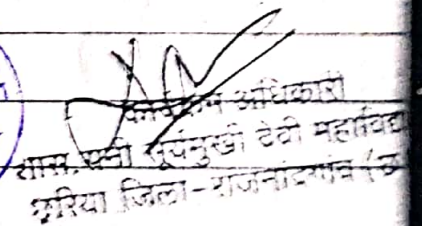 कार्यक्रम अधिकारी
शास. रानी सूर्यमुखी देवी महाविद्या
छुरिया जिला - राजनांदगांव (छ